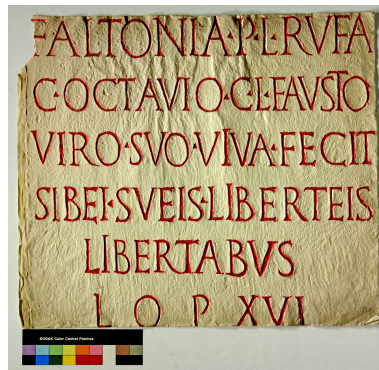 FALTONIA·P·L·RVFA
C·OCTAVIO·C·L·FAVSTO
VIRO·SVO·VIVA·FECIT
SIBEI·SVEIS·LIBERTEIS
LIBERTABVS
L O P XVI
KODAK Color Control Patches